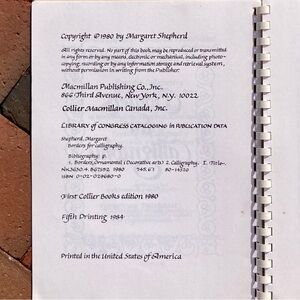 Copyright ©1980 by Margaret Shepherd
All rights reserved. No part of this book may be reproduced or transmitted
in any form or by any means, electronic or mechanical, including photo-
copying, recording or by any information storage and retrieval system,
without permission in writing from the Publisher.
Macmillan Publishing Co., Inc.
866 Third Avenue, New York, N.Y. 10022
Collier Macmillan Canada, Inc.
Library of Congress Cataloging in Publication Data
Shepherd, Margaret
Borders for calligraphy.
Bibliography: p.
1. Borders, Ornamental (Decorative arts) 2. Calligraphy. I. Title.
NK3630.4.B67S52 1980 745.6'1 80-14320
ISBN 0-02-029680-0
First Collier Books edition 1980
Fifth Printing 1984
Printed in the United States of America